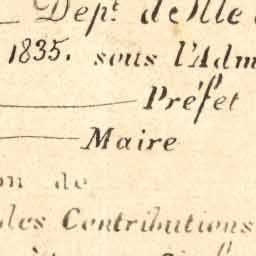 Dépt. d'Ille
1835. sous l'Adm
Préfet
Maire
on de
des Contributions